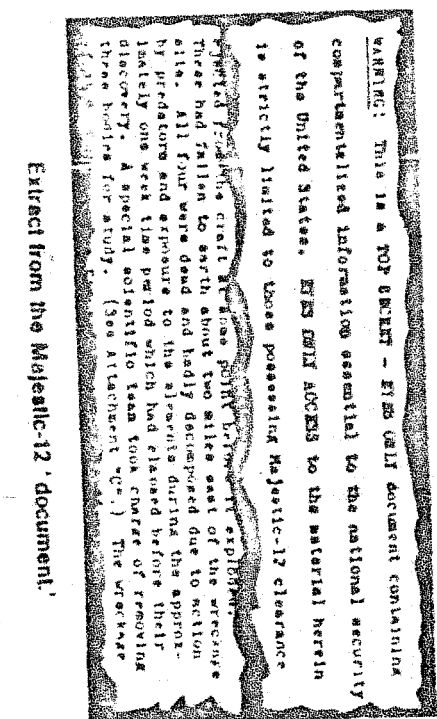 WARNING: This is a TOP SECRET - EYES ONLY document containing
compartmentalized information essential to the national security
of the United States. EYES ONLY ACCESS to the material herein
is strictly limited to those possessing Majestic-12 clearance
ejected from the craft at some point before it exploded.
These had fallen to earth about two miles east of the wreckage
site. All four were dead and badly decomposed due to action
by predators and exposure to the elements during the approx-
imately one week time period which had elapsed before their
discovery. A special scientific team took charge of removing
these bodies for study. (See Attachment "C".) The wreckage
Extract from the Majestic-12 'document.'